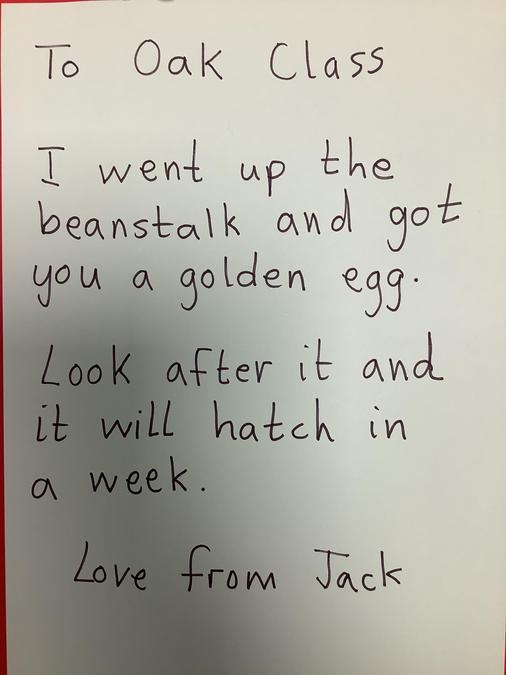 To Oak Class
I went up the
beanstalk and got
you a golden egg.
Look after it and
it will hatch in
a week.
Love from Jack